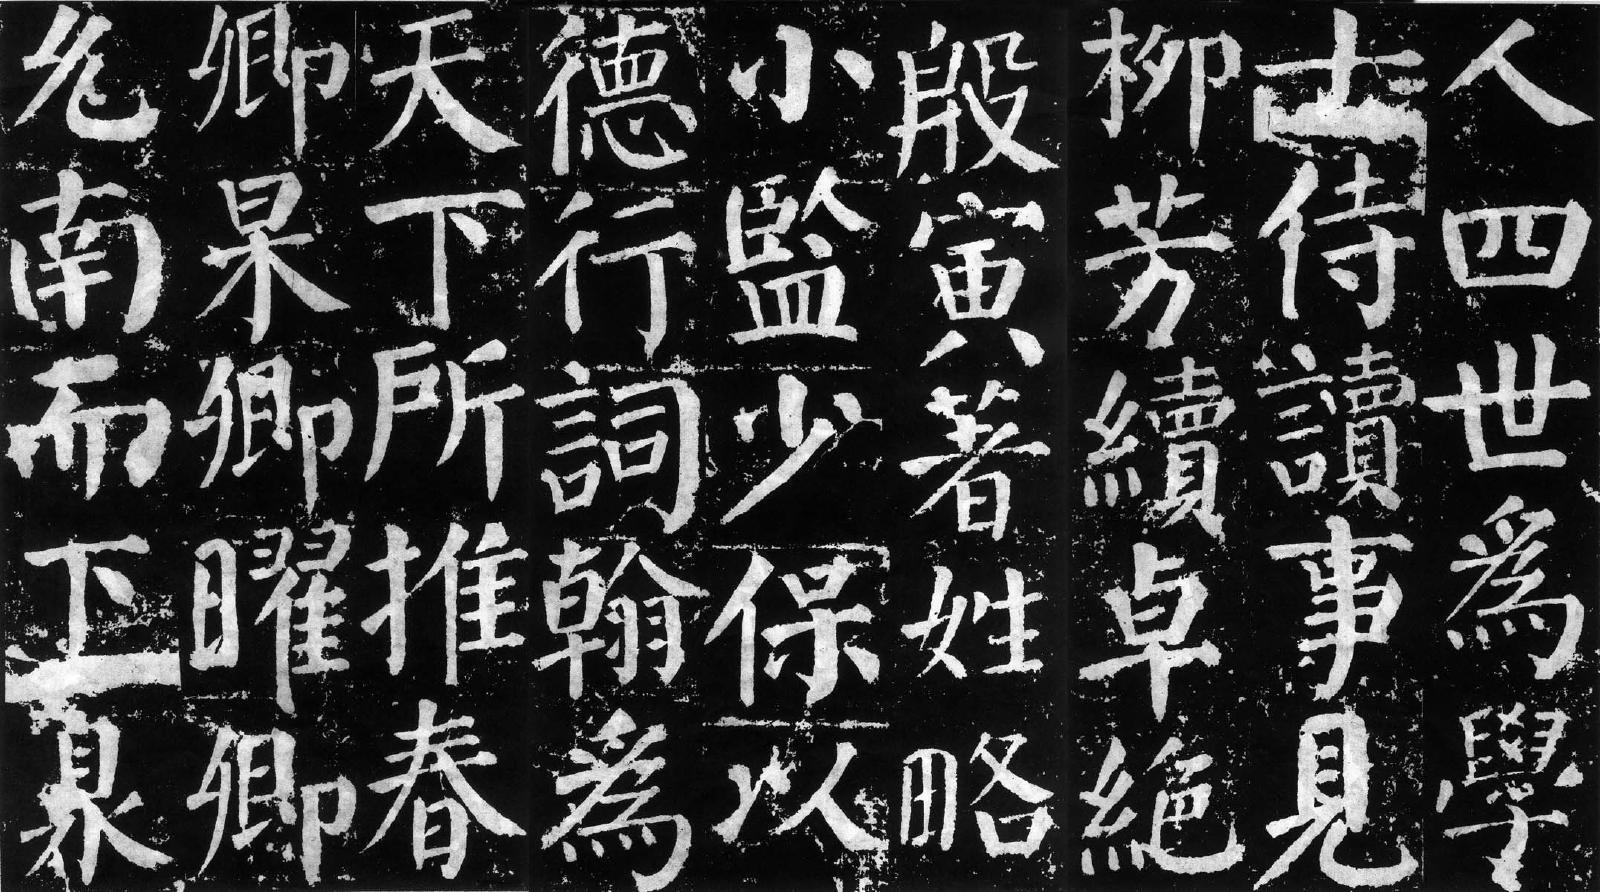 人四世爲學
士侍讀事見
柳芳續卓絕
殷寅著姓略
小監少保以
德行詞翰爲
天下所推春
卿杲卿曜卿
允南而下臮